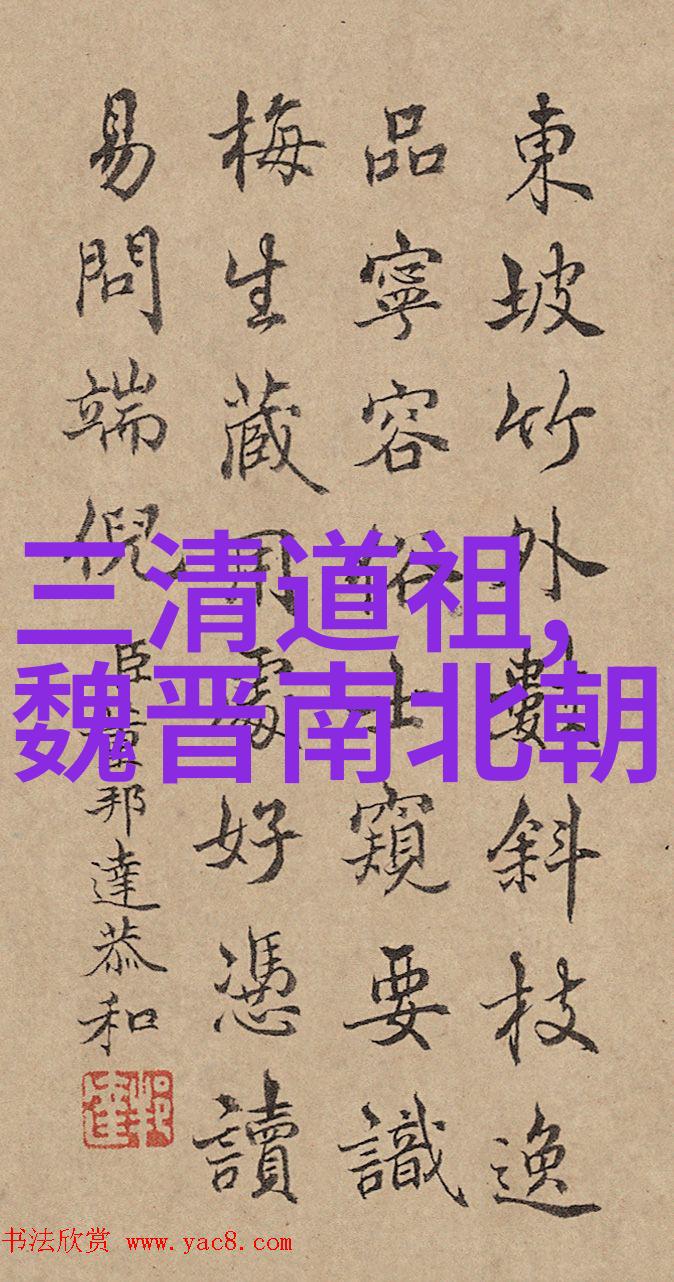 東坡竹外數斜枝逸
品寧容俗士窺要識
梅生藏用處好憑讀
易問端倪
臣董邦達恭和
三清道祖,
魏晋南北朝
书法欣赏 www.yac8.com